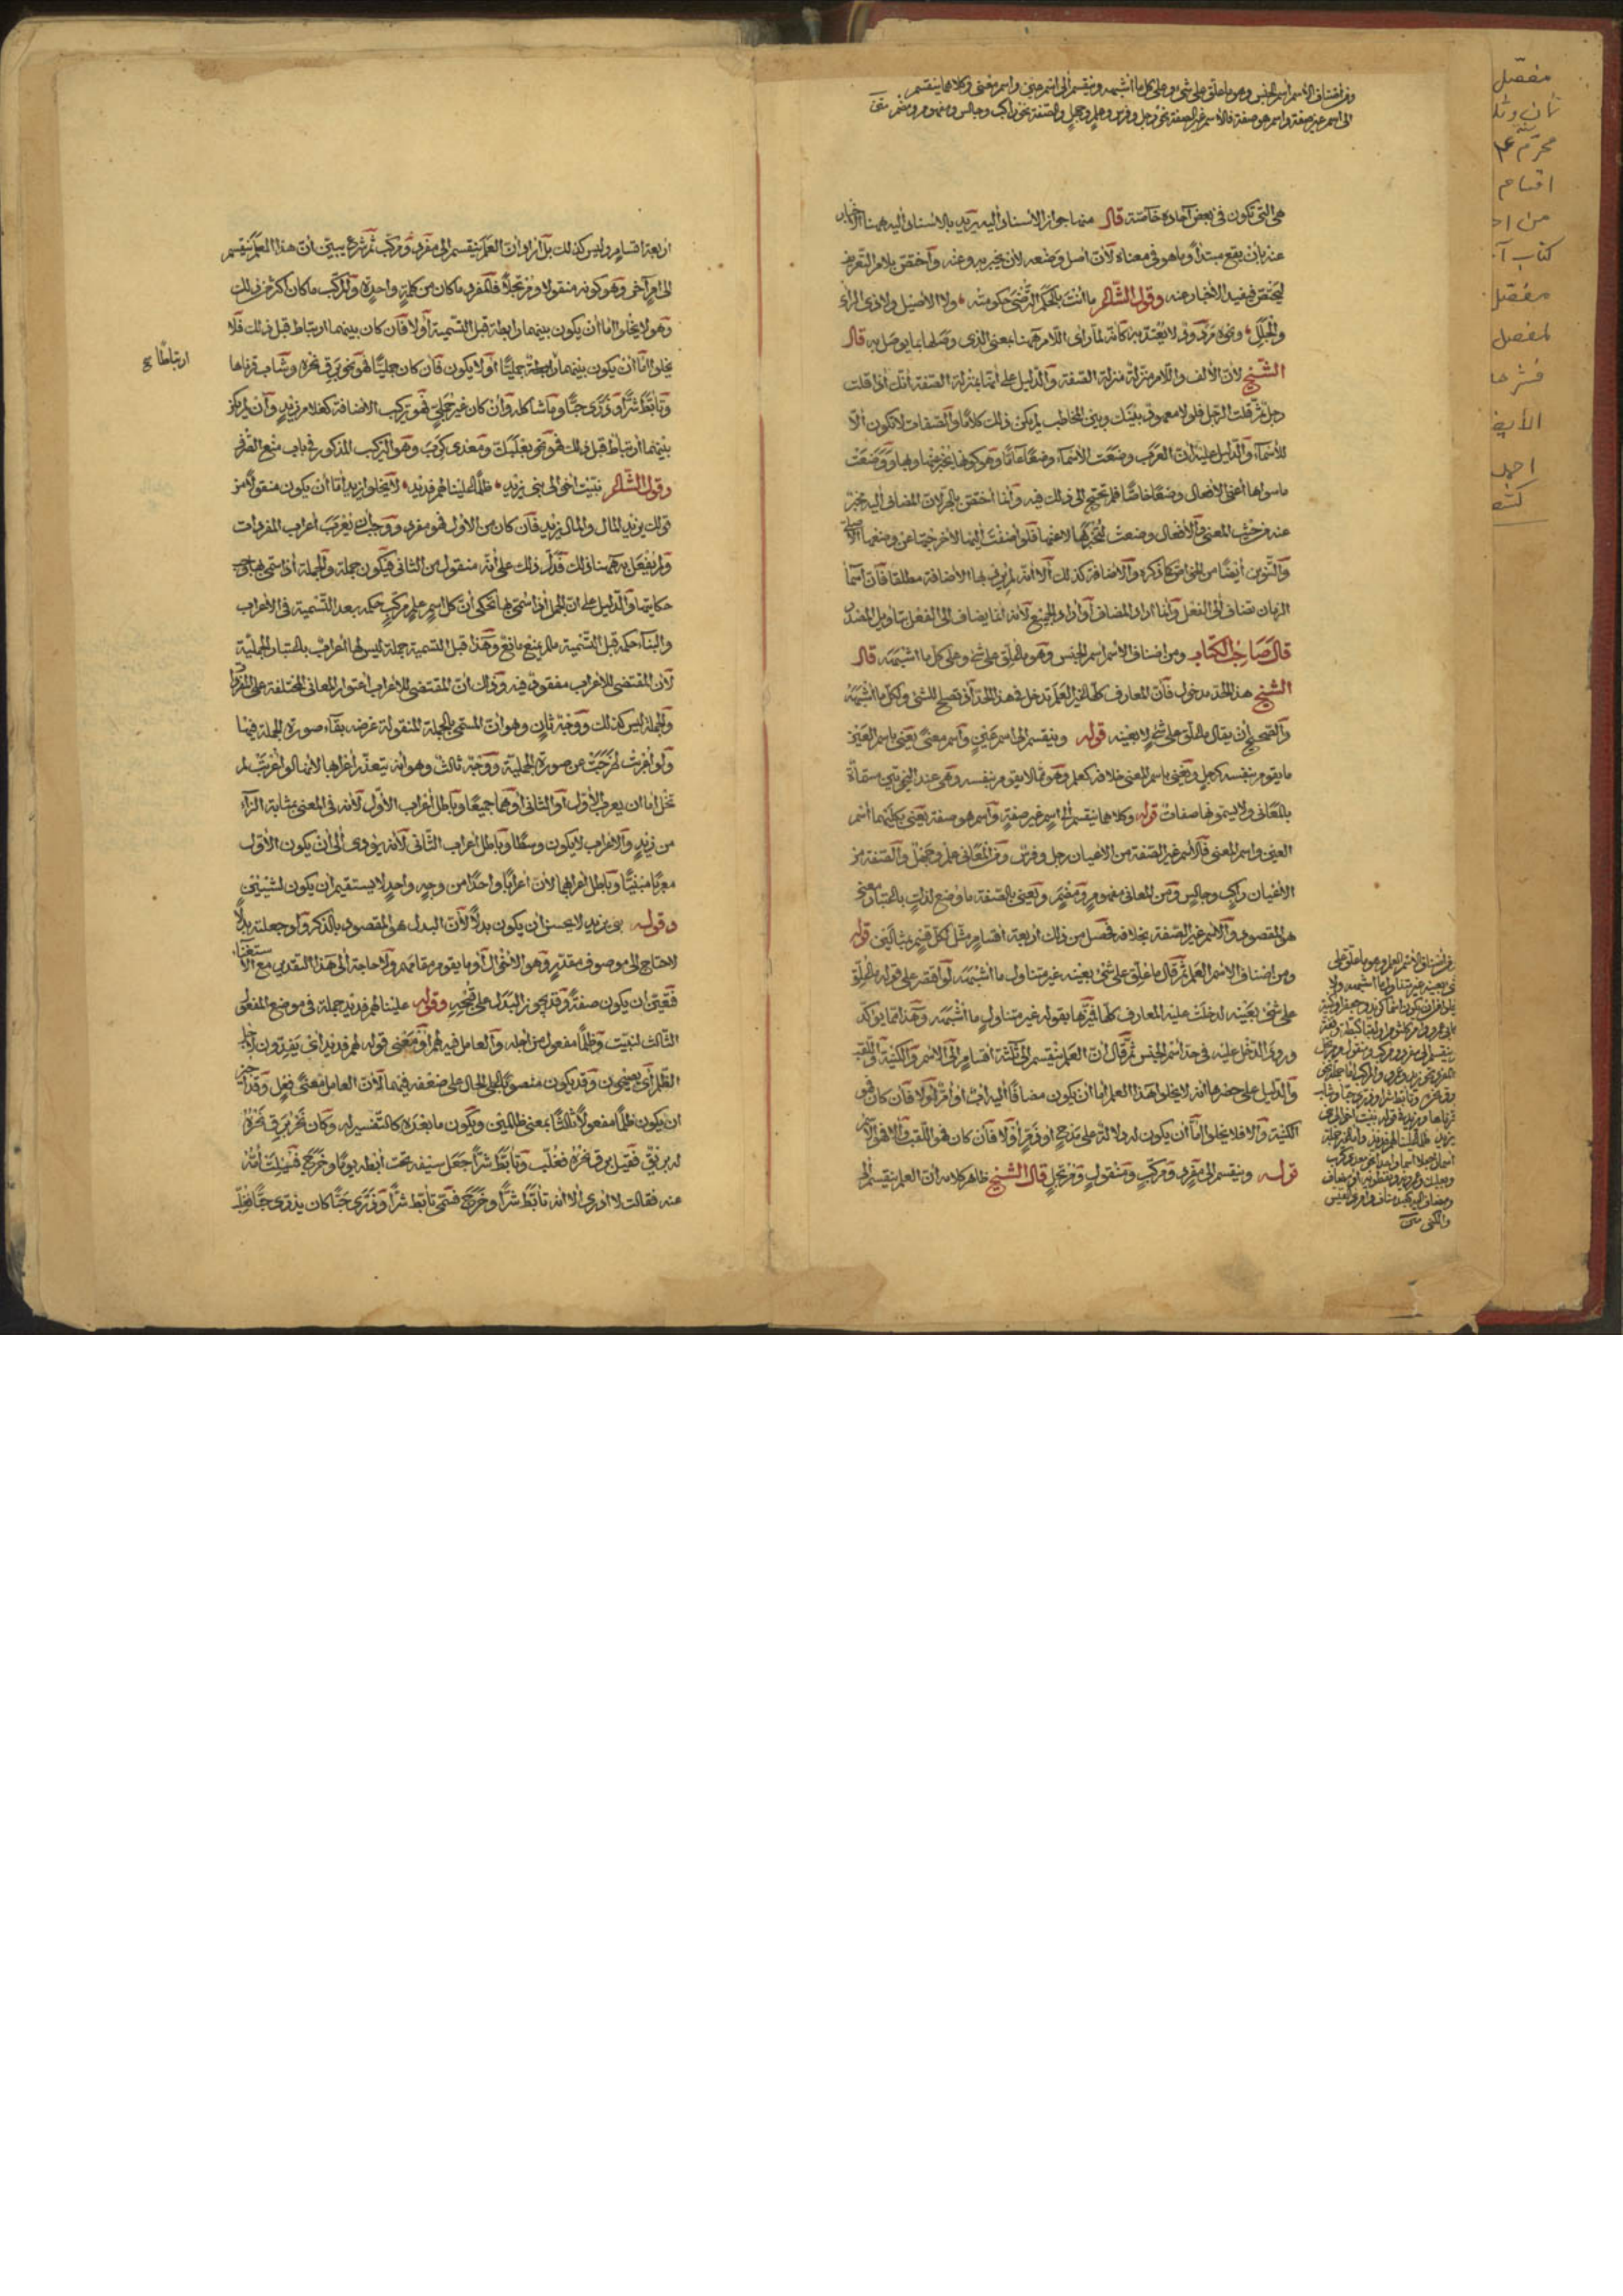 ومن أصناف الاسم اسم الجنس وهو ما علق على شيء وعلى كل ما أشبهه وينقسم إلى اسم عين واسم معنى وكلاهما ينقسم
إلى اسم غير صفة واسم هو صفة فالاسم غير الصفة نحو رجل وفرس وعلم وجهل والصفة نحو راكب وجالس ومفهوم ومضمر
هي التي تكون في بعض آحاده خاصة قال منها جواز الإسناد إليه يريد بالإسناد إليه ههنا الإخبار
عنه بأن يقع مبتدأ وما هو في معناه لأن أصل وضعه لأن يخبر به وعنه واختص بلام التعريف
ليختص فيفيد الإخبار عنه وقول الشاعر ما أنت بالحكم الترضى حكومته ولا الأصيل ولا ذي الرأي
والجدل ونحوه مردود لا يعتد به كأنه لما رأى اللام ههنا بمعنى الذي وصلها بما يوصل به قال
الشيخ لأن الألف واللام منزلة منزلة الصفة والدليل على أنها بمنزلة الصفة أنك إذا قلت
رجل ثم قلت الرجل فلولا معهود بينك وبين المخاطب لم يكن ذلك كلاما والصفات لا تكون إلا
للأسماء والدليل عليه أن العرب وضعت الأسماء وضعا عاما وهو كونها يخبر عنها وبها ووضعت
ما سواها أعني الأفعال وضعا خاصا فلم تحتج إلى ذلك فيه وإنما اختص بالجر لأن المضاف إليه مخبر
عنه من حيث المعنى والأفعال وضعت ليخبر بها لا عنها فلو أضفت إليها لأخرجتها عن وضعها الأصلي
والتنوين أيضا من الخواص كما ذكره والإضافة كذلك إلا أنه لم يرد بها الإضافة مطلقا فإن أسماء
الزمان تضاف إلى الفعل وإنما أراد المضاف أو أراد الجميع لأنه إنما يضاف إلى الفعل بتأويل المصدر
قال صاحب الكتاب ومن أصناف الاسم اسم الجنس وهو ما علق على شيء وعلى كل ما أشبهه قال
الشيخ هذا الحد مدخول فإن المعارف كلها غير العلم تدخل في هذا الحد إذ تصلح للشيء ولكل ما أشبهه
والصحيح أن يقال ما علق على شيء لا بعينه قوله وينقسم إلى اسم عين واسم معنى يعني باسم العين
ما يقوم بنفسه كرجل ويعني باسم المعنى خلافه كعلم وهو ما لا يقوم بنفسه وهي عند النحويين مسماة
بالمعاني ولا يسمونها صفات قوله وكلاهما ينقسم إلى اسم غير صفة واسم هو صفة يعني بكليهما اسم
العين واسم المعنى فالاسم غير الصفة من الأعيان رجل وفرس ومن المعاني علم وجهل والصفة من
الأعيان راكب وجالس ومن المعاني مفهوم ومضمر ويعني بالصفة ما وضع لذات باعتبار معنى
هو المقصود والاسم غير الصفة بخلافه فحصل من ذلك أربعة أقسام مثل لكل قسم بمثالين قوله
ومن أصناف الاسم العلم ثم قال ما علق على شيء بعينه غير متناول ما أشبهه لو اقتصر على قوله ما علق
على شيء بعينه لدخلت عليه المعارف كلها فميزها بقوله غير متناول ما أشبهه وهذا مما يؤكد
ورود الدخل عليه في حد اسم الجنس ثم قال إن العلم ينقسم إلى ثلاثة أقسام إلى الاسم والكنية واللقب
والدليل على حصرها أنه لا يخلو هذا العلم إما أن يكون مضافا إليه أب أو أم أو لا فإن كان فهو
الكنية وإلا فلا يخلو إما أن يكون له دلالة على مدح أو ذم أو لا فإن كان فهو اللقب وإلا فهو الاسم
قوله وينقسم إلى مفرد ومركب ومنقول ومرتجل قال الشيخ ظاهر كلامه أن العلم ينقسم إلى
ومن أصناف الاسم العلم وهو ما علق على
شيء بعينه غير متناول ما أشبهه ولا
يخلو من أن يكون اسما كزيد وجعفر أو كنية
كأبي عمرو وأم كلثوم أو لقبا كبطة وقفة
وينقسم إلى مفرد ومركب ومنقول ومرتجل
فالمفرد نحو زيد وعمرو والمركب إما جملة نحو
برق نحره وتأبط شرا وذرى حبا وشاب
قرناها ويزيد في قوله نبئت أخوالي بني
يزيد ظلما علينا لهم فديد وإما غير جملة
اسمان جعلا اسما واحدا نحو معديكرب
وبعلبك وعمرويه ونفطويه أو مضاف
ومضاف إليه كعبد مناف وامرئ القيس
والكنى
أربعة أقسام وليس كذلك بل أراد أن العلم ينقسم إلى مفرد ومركب ثم شرع يبين أن هذا العلم ينقسم
إلى أمر آخر وهو كونه منقولا ومرتجلا فالمفرد ما كان من كلمة واحدة والمركب ما كان أكثر من ذلك
وهو لا يخلو إما أن يكون بينهما رابطة قبل التسمية أو لا فإن كان بينهما ارتباط قبل ذلك فلا
يخلو إما أن يكون بينهما رابطة جمليا أو لا يكون فإن كان جمليا فهو نحو برق نحره وشاب قرناها
ارتباطا
وتأبط شرا وذرى حبا وما شاكله وإن كان غير جملي فهو تركيب الإضافة كغلام زيد وإن لم يكن
بينهما ارتباط قبل ذلك فهو نحو بعلبك ومعدي كرب وهو التركيب المذكور في باب منع الصرف
وقول الشاعر نبئت أخوالي بني يزيد ظلما علينا لهم فديد لا يخلو يزيد إما أن يكون منقولا من
قولك يزيد المال والمال يزيد فإن كان من الأول فهو مفرد ووجب أن يعرب إعراب المفردات
ولم يفعل به ههنا ذلك فدل ذلك على أنه منقول من الثاني فيكون جملة والجملة إذا سمي بها وجب
حكايتها والدليل على أن الجمل إذا سمي بها تحكى أن كل اسم علم مركب حكمه بعد التسمية في الإعراب
والبناء حكمه قبل التسمية ما لم يمنع مانع وهذا قبل التسمية جملة ليس لها إعراب باعتبار الجملية
لأن المقتضي للإعراب مفقود فيه وذلك أن المقتضي للإعراب اعتوار المعاني المختلفة على المفرد
والجملة ليس كذلك ووجه ثان وهو أن المسمي بالجملة المنقولة غرضه بقاء صورة الجملة فيها
ولو أعربت لخرجت عن صورة الجملية ووجه ثالث وهو أنه يتعذر إعرابها لأنها لو أعربت لم
تخل إما أن يعرب الأول أو الثاني أو هما جميعا وباطل إعراب الأول لأنه في المعنى بمثابة الزاء
من زيد والإعراب لا يكون وسطا وباطل إعراب الثاني لأنه يؤدي إلى أن يكون الأول
معربا مبنيا وباطل إعرابهما لأن إعرابا واحدا من وجه واحد لا يستقيم أن يكون لشيئين
وقوله بني يزيد لا يحسن أن يكون بدلا لأن البدل هو المقصود بالذكر ولو جعلته بدلا
لاحتاج إلى موصوف مقدر وهو الأخوال أو ما يقوم مقامهم ولا حاجة إلى هذا التقدير مع الاستغناء
فتعين أن يكون صفة وقد يجوز البدل على قبحه وقوله علينا لهم فديد جملة في موضع المفعول
الثالث لنبئت وظلما مفعول من أجله والعامل فيه لهم أو معنى قوله لهم فديد أي يفدون لأجل
الظلم أي يصيحون وقد يكون منصوبا على الحال على ضعفه فيهما لأن العامل معنى فعل وقد أجيز
أن يكون ظلما مفعولا ثالثا بمعنى ظالمين ويكون ما بعده كالتفسير له وكان نحر برق نحره
له بريق فقيل برق نحره فغلب وتأبط شرا جعل سيفه تحت إبطه يوما وخرج فسئلت أمه
عنه فقالت لا أدري إلا أنه تأبط شرا وخرج فسمي تأبط شرا وذرى حبا كان يذري حبا فغلب
مفصل
محرم
اقسام
كتاب
مفصل
لمفصل